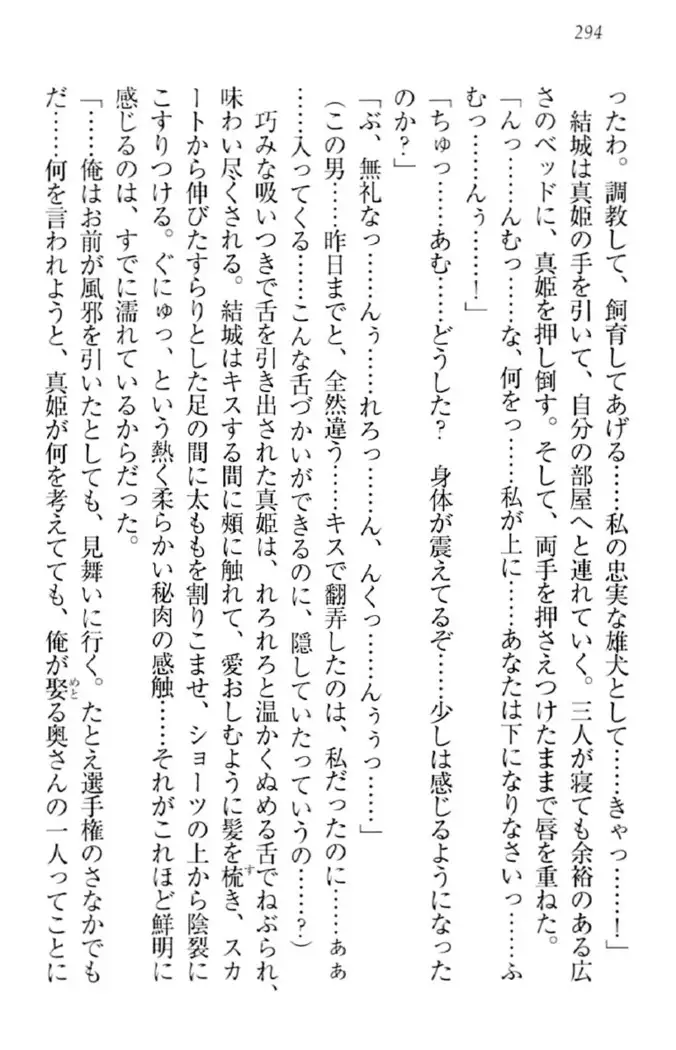 294
ったわ。調教して、飼育してあげる……私の忠実な雄犬として……きゃっ……！」
　結城は真姫の手を引いて、自分の部屋へと連れていく。三人が寝ても余裕のある広
さのベッドに、真姫を押し倒す。そして、両手を押さえつけたままで唇を重ねた。
「んっ……んむっ……な、何をっ……私が上に……あなたは下になりなさいっ……ふ
むっ……んぅ……！」
「ちゅっ……あむ……どうした？　身体が震えてるぞ……少しは感じるようになった
のか？」
「ぶ、無礼なっ……んぅ……れろっ……ん、んくっ……んぅうっ……」
（この男……昨日までと、全然違う……キスで翻弄したのは、私だったのに……ぁぁ
……入ってくる……こんな舌づかいができるのに、隠していたっていうの……？）
　巧みな吸いつきで舌を引き出された真姫は、れろれろと温かくぬめる舌でねぶられ、
味わい尽くされる。結城はキスする間に頰に触れて、愛おしむように髪を梳す き、スカ
ートから伸びたすらりとした足の間に太ももを割りこませ、ショーツの上から陰裂に
こすりつける。ぐにゅっ、という熱く柔らかい秘肉の感触……それがこれほど鮮明に
感じるのは、すでに濡れているからだった。
「……俺はお前が風邪を引いたとしても、見舞いに行く。たとえ選手権のさなかでも
だ……何を言われようと、真姫が何を考えてても、俺が娶めと る奥さんの一人ってことに